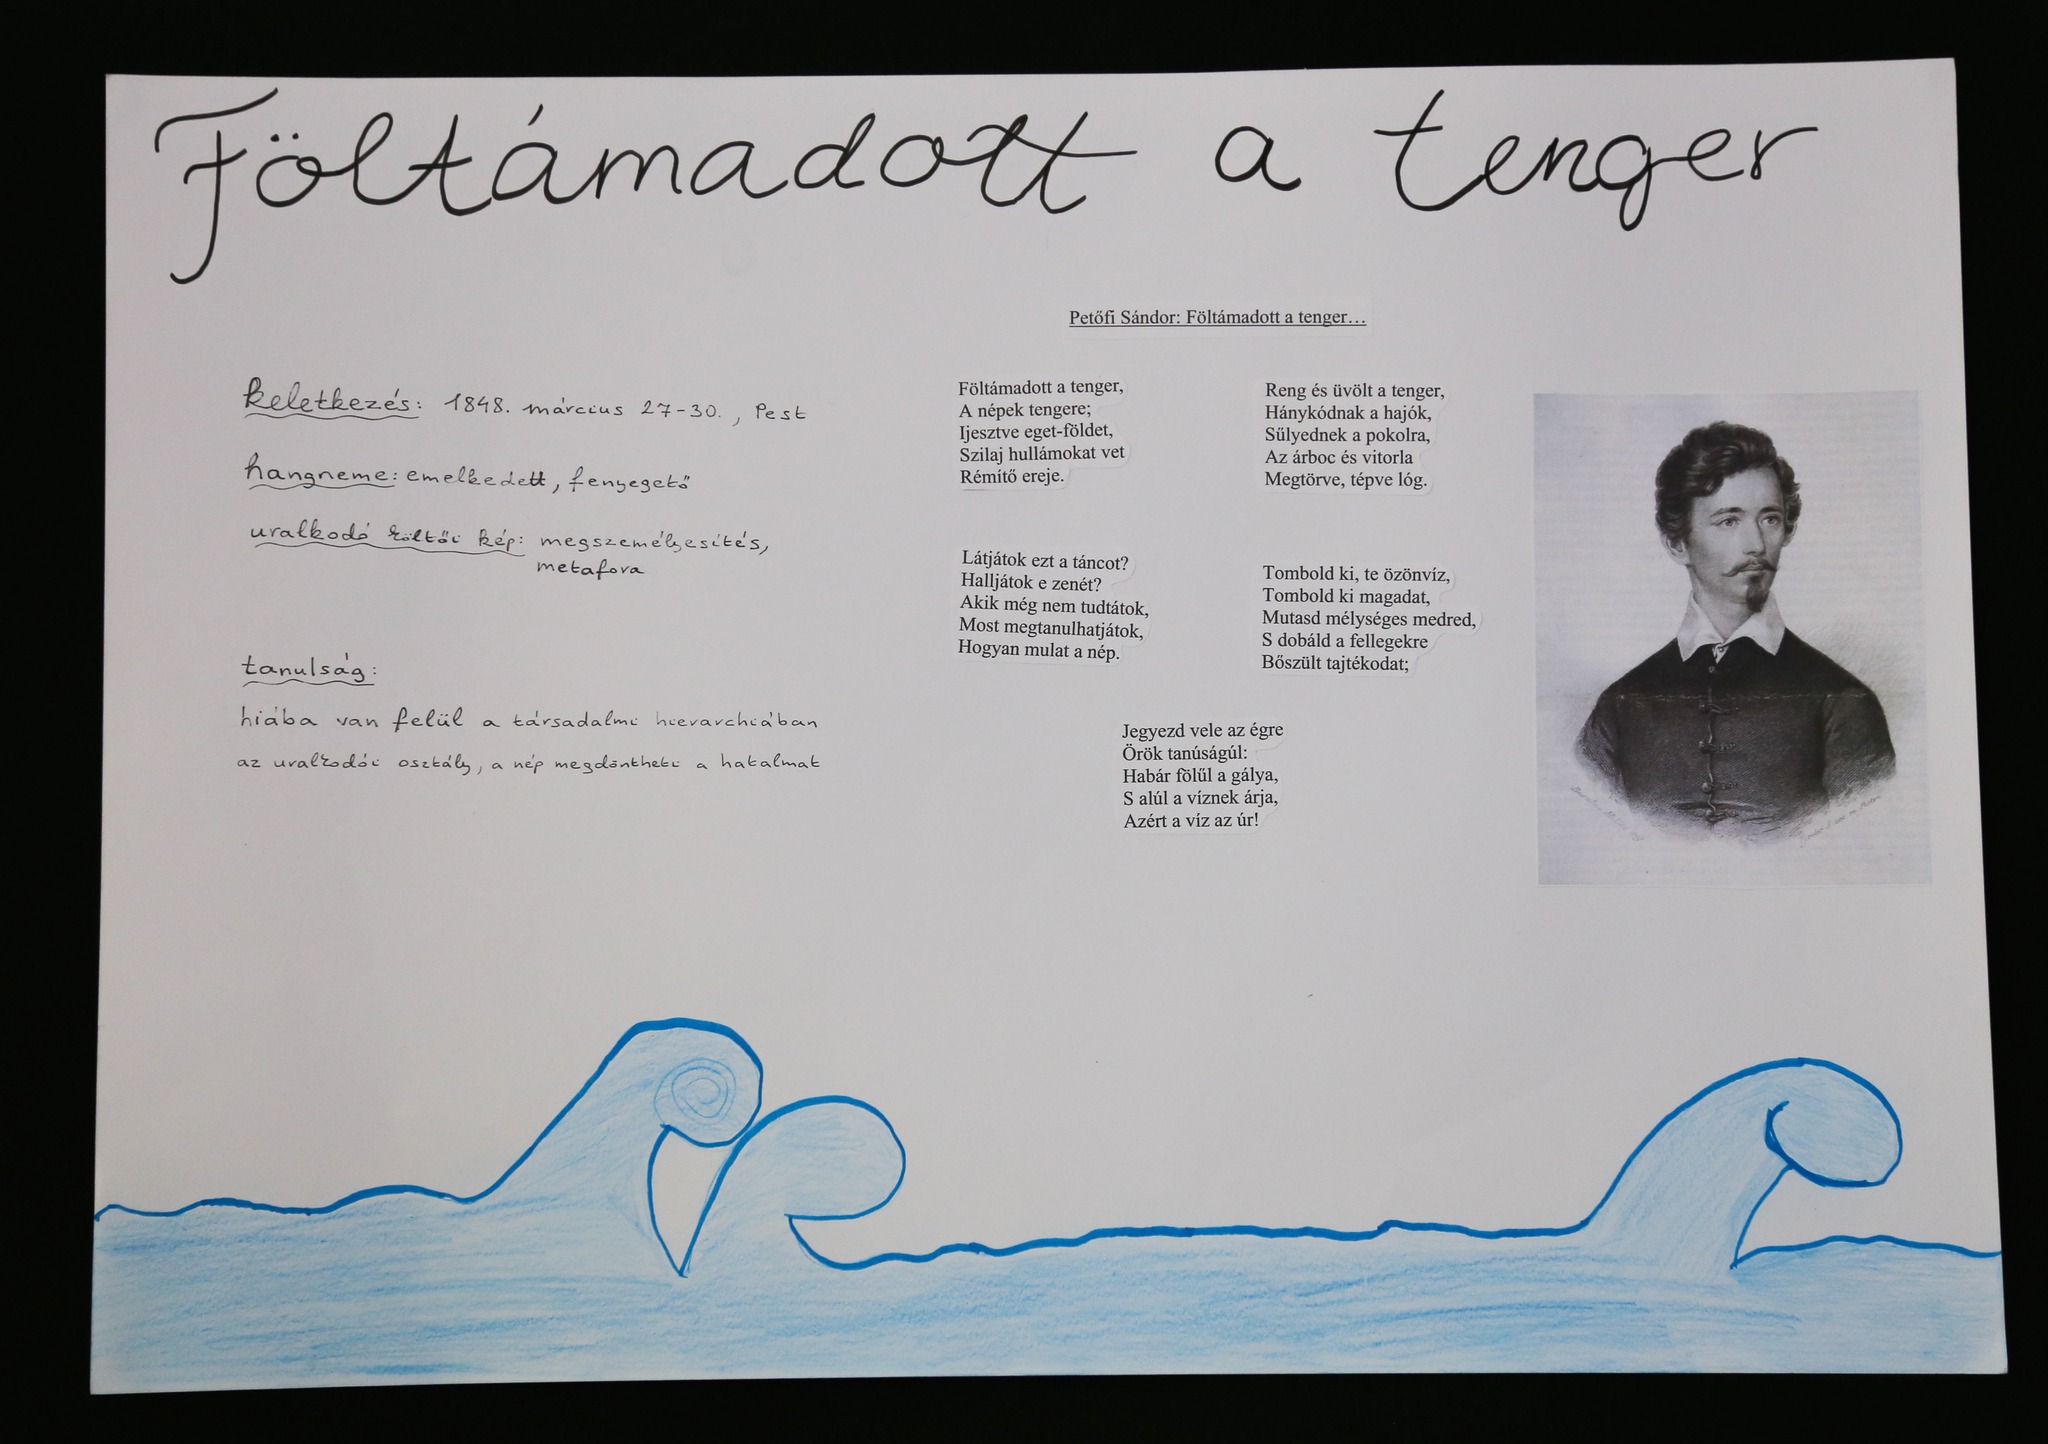 Föltámadott a tenger
keletkezés: 1848. március 27-30., Pest
hangneme: emelkedett, fenyegető
uralkodó költői kép: megszemélyesítés,
metafora
tanulság:
hiába van felül a társadalmi hierarchiában
az uralkodói osztály, a nép megdöntheti a hatalmat
Petőfi Sándor: Föltámadott a tenger...
Föltámadott a tenger,
A népek tengere;
Ijesztve eget-földet,
Szilaj hullámokat vet
Rémítő ereje.
Látjátok ezt a táncot?
Halljátok e zenét?
Akik még nem tudtátok,
Most megtanulhatjátok,
Hogyan mulat a nép.
Reng és üvölt a tenger,
Hánykódnak a hajók,
Sűlyednek a pokolra,
Az árboc és vitorla
Megtörve, tépve lóg.
Tombold ki, te özönvíz,
Tombold ki magadat,
Mutasd mélységes medred,
S dobáld a fellegekre
Bőszült tajtékodat;
Jegyezd vele az égre
Örök tanúságúl:
Habár fölűl a gálya,
S alúl a víznek árja,
Azért a víz az úr!